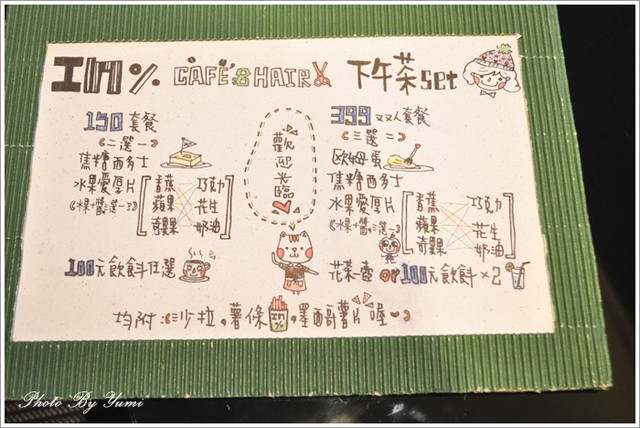 工吶% CAFÉ & HAIR 下午茶 set
150 套餐
(二選一)
焦糖西多士
水果愛厚片
《水果+醬 選一》
香蕉 巧克力
蘋果 花生
奇異果 奶油
100元飲料任選
歡迎光臨
399 双人套餐
(三選二)
歐姆蛋
焦糖西多士
水果愛厚片
《水果+醬 選一》
香蕉 巧克力
蘋果 花生
奇異果 奶油
花茶壺 or 100元飲料×2
均附:沙拉,薯條,墨西哥薯片喔
Photo By Yumi